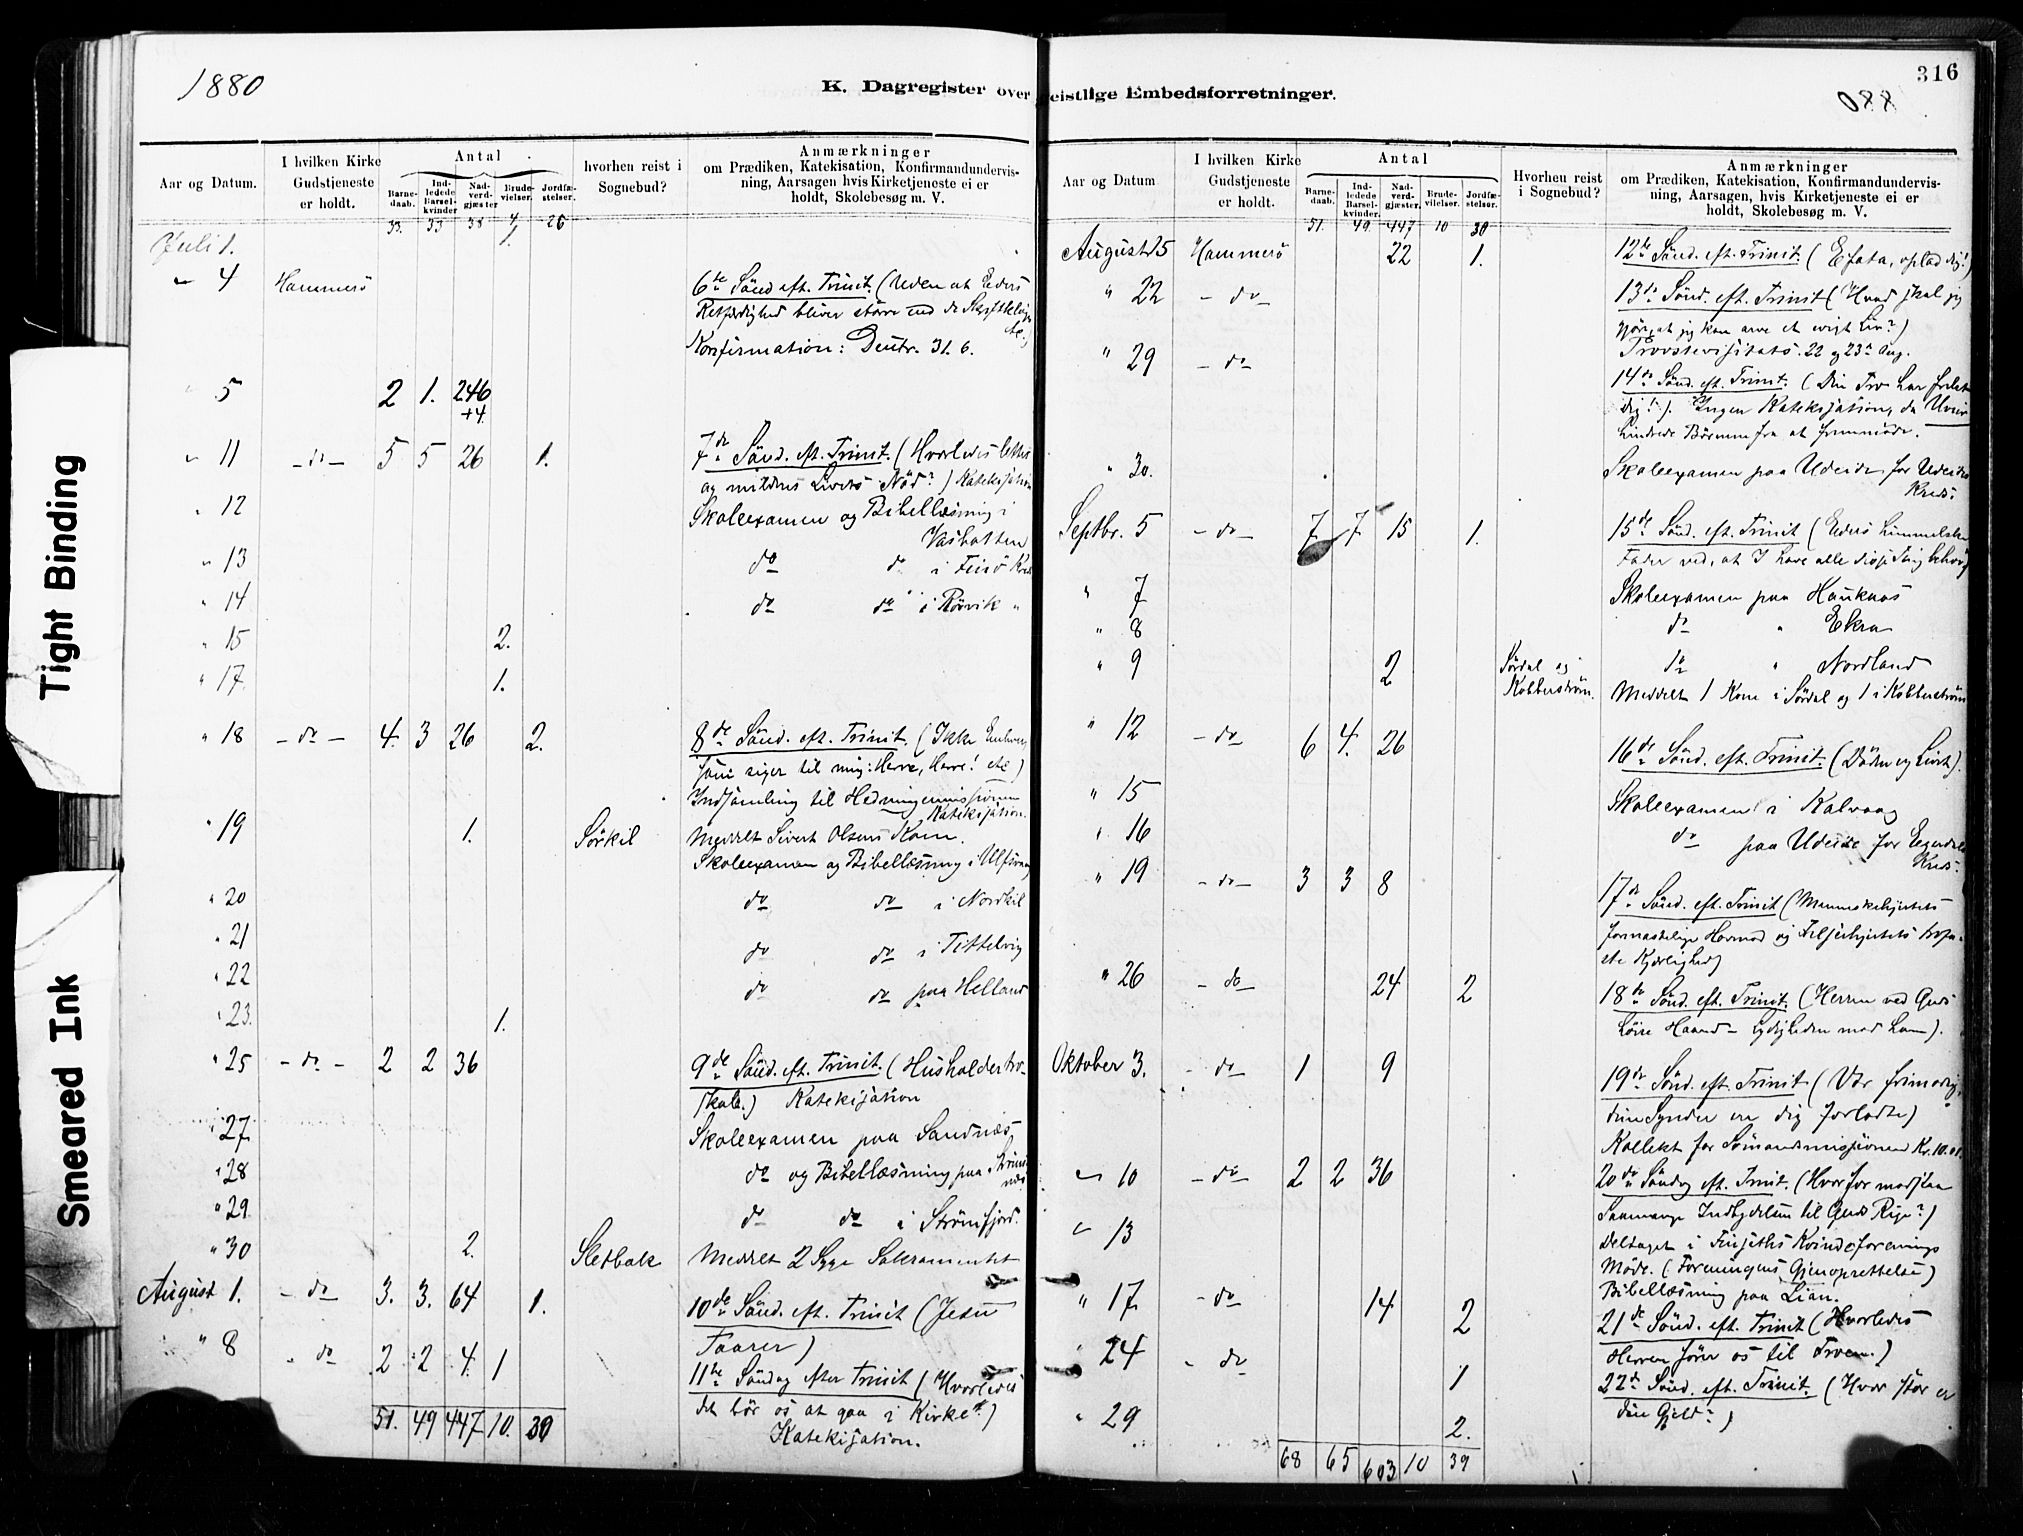 1880
K. Dagregister over
Aar og Datum.
I hvilken Kirke Gudstjeneste er holdt.
Antal
Barne-daab.
Ind-ledede Barsel-kvinder
Nad-verd-gjæster
Brude-vielser.
Jordfæ-stelser.
hvorhen reist i Sognebud?
Anmærkninger
om Prædiken, Katekisation, Konfirmandundervis-
ning, Aarsagen hvis Kirketjeneste ei er
holdt, Skolebesøg m. V.
33. 33 38 4 26
Juli 1. 1.
" 4 Hammerö 6te Sönd eft. Trinit. (Uden at Eders
Retfærdighed bliver större end de
Konfirmation: Deutr. 31. 6.
" 5 2 1. 246
+4.
" 11 - do - 5 5 26 1. 7de Sönd. eft. Trinit. (Hvorledes lettes
og mildnes Livets Nöd?) Katekisation
" 12 Skoleexamen og Bibellæsning i
" 13 do do i
" 14 do do i Rörvik "
" 15 2.
" 17. 1.
" 18 - do - 4. 3 26 2. 8de Sönd. eft. Trinit. (Ikke Enhver,
som siger til mig: Herre, Herre! etc)
Indsamling til Hedningemissionen
Katekisation.
" 19 1. Sörkil Meddelt Sivert Olsens Kone.
Skoleexamen og Bibellæsning i
" 20 do do i Nordkil
" 21 do do i Tittelvig
" 22 do do paa Helland
" 23. 1.
" 25 - do - 2 2 36 9de Sönd. eft. Trinit. (Husholdertro-
skab.) Katekisation
" 27 Skoleexamen paa Sandnæs
" 28 do og Bibellæsning paa
" 29 do do i Strömfjord.
" 30 2. Sletbak Meddelt 2 Syge Sakramentet
August 1. - do 3. 3. 64 1. 10de Sönd. eft. Trinit (Jesu
Taarer)
" 8 " do 2 2 4. 1 11te Söndag efter Trinit (Hvorledes
det bör os at gaa i Kirke?)
Katekisation.
51. 49 447 10. 30
316
1880
eistlige Embedsforretninger.
Aar og Datum
I hvilken Kirke Gudstjeneste er holdt.
Antal
Barne-daab.
Ind-ledede Barsel-kvinder.
Nad-verd-gjæster.
Brude-vielser.
Jordfæ-stelser.
Hvorhen reist i Sognebud?
Anmærkninger
om Prædiken, Katekisation, Konfirmandundervis-
ning, Aarsagen, hvis Kirketjeneste ei er
holdt, Skolebesøg m. V.
51. 49. 447 10 30
August 15 Hammerö 22 1. 12te Sönd. eft. Trinit. (Efata, oplad dig!)
" 22 - do - 13de Sönd. eft. Trinit (Hvad skal jeg
gjöre, at jeg kan arve et evigt Liv?)
Provstevisitats. 22 og 23de Aug.
" 29 - do 14de Sönd. eft. Trinit. (Din Tro har frelst
dig!). Ingen Katekisation, da Uveir
hindrede Börnene fra at fremmöde.
" 30. Skoleexamen paa Udeide for Udeides
Kreds.
Septbr. 5 - do - 7 7 15 1. 15de Sönd. eft. Trinit (Eders himmelske
Fader ved, at I have alle disse Ting behov)
" 7 Skoleexamen paa Hauknæs
" 8 do " Ekra
" 9 2 Sördal og Kobberström. do " Nordland
Meddelt 1 Kone i Sördal og 1 i Kobberström
" 12 - do - 6 4. 26 16de Sönd. eft. Trinit. (Döden og Livet).
" 15 Skoleexamen i Kalvaag
" 16 do paa Udeide for
Kreds.
" 19 - do - 3 3 8 17de Sönd. eft. Trinit (Menneskehjertets
formastelige Hovmod og Frelserhjertets
Kjærlighed)
" 26 - do 24 2 18de Sönd. eft. Trinit. (Herren ved Guds
höire Haand - Lydigheden mod ham).
Oktober 3. - do - 1 9 19de Sönd. eft. Trinit (Vær frimodig,
dine Synder ere dig forladte)
Kollekt for Sömandsmissionen Kr. 10.01.
" 10 - do - 2 2 36 20de Söndag eft. Trinit. (Hvorfor modstaa
saamange Indbydelsen til Guds Rige?)
" 13 Deltaget i Kvindeforenings
Möde. (Foreningens Gjenoprettelse)
Bibellæsning paa Lian.
" 17 - do 14 2 21de Sönd. eft. Trinit (Hvorledes
Herren förer os til Troen.)
" 24 - do 1 22de Sönd. eft. Trinit. (Hvor stor er
din Gjeld?)
" 29 2.
68 65 603 10 39
Tight Binding
Smeared Ink